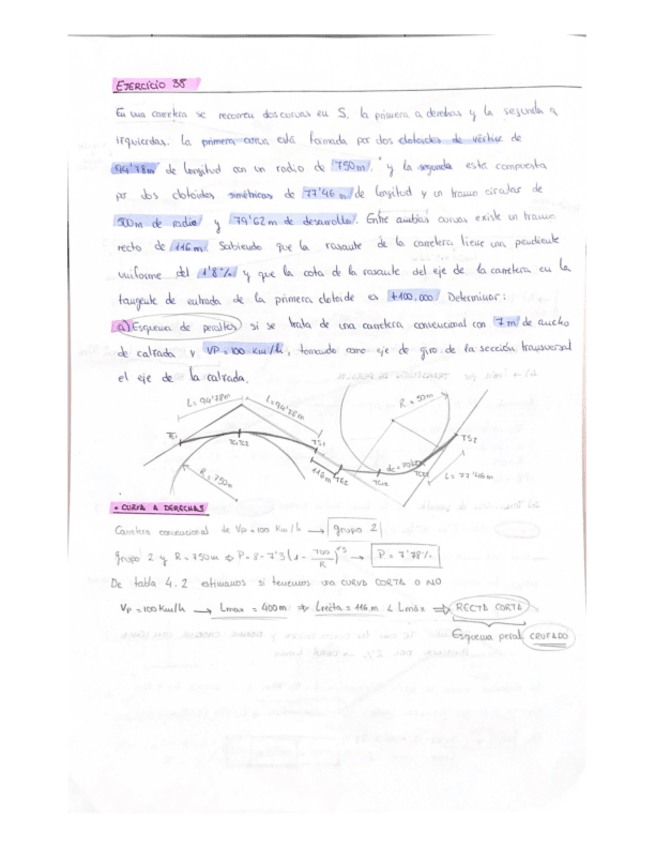 EJERCICIO 35
En una carretera se recorren dos curvas en S, la primera a derechas y la segunda a
izquierdas. La primera curva está formada por dos clotoides de vértice de
94'78m de longitud con un radio de 750m. y la segunda esta compuesta
por dos clotoides simétricas de 77'46 m de longitud y un tramo circular de
500m de radio y 79'62m de desarrollo. Entre ambas curvas existe un tramo
recto de 116m. Sabiendo que la rasante de la carretera tiene una pendiente
uniforme del 1'8% y que la cota de la rasante del eje de la carretera en la
tangente de entrada de la primera clotoide es +100,000 Determinar:
a) Esquema de peraltes si se trata de una carretera convencional con 7m de ancho
de calzada y VP=100 Km/h, tomando como eje de giro de la sección transversal
el eje de la calzada.
L=94'78m
L=94'78m
R=50m
TE1
TC1TC1
TS1
TS2
R=750m
116m
TE2
TCE2
L=77'46m
• CURVA A DERECHAS
Carretera convencional de VP=100 Km/h → grupo 2
grupo 2 y R=750m ⇒ P=8-7'3(1-700/R)^1'3 → P=7'78%
De tabla 4.2 estimamos si tenemos una CURVA CORTA O NO
VP=100Km/h → Lmax = 400m ⇒ Lrecta=116m < Lmáx ⇒ RECTA CORTA
Esquema peral CRUZADO